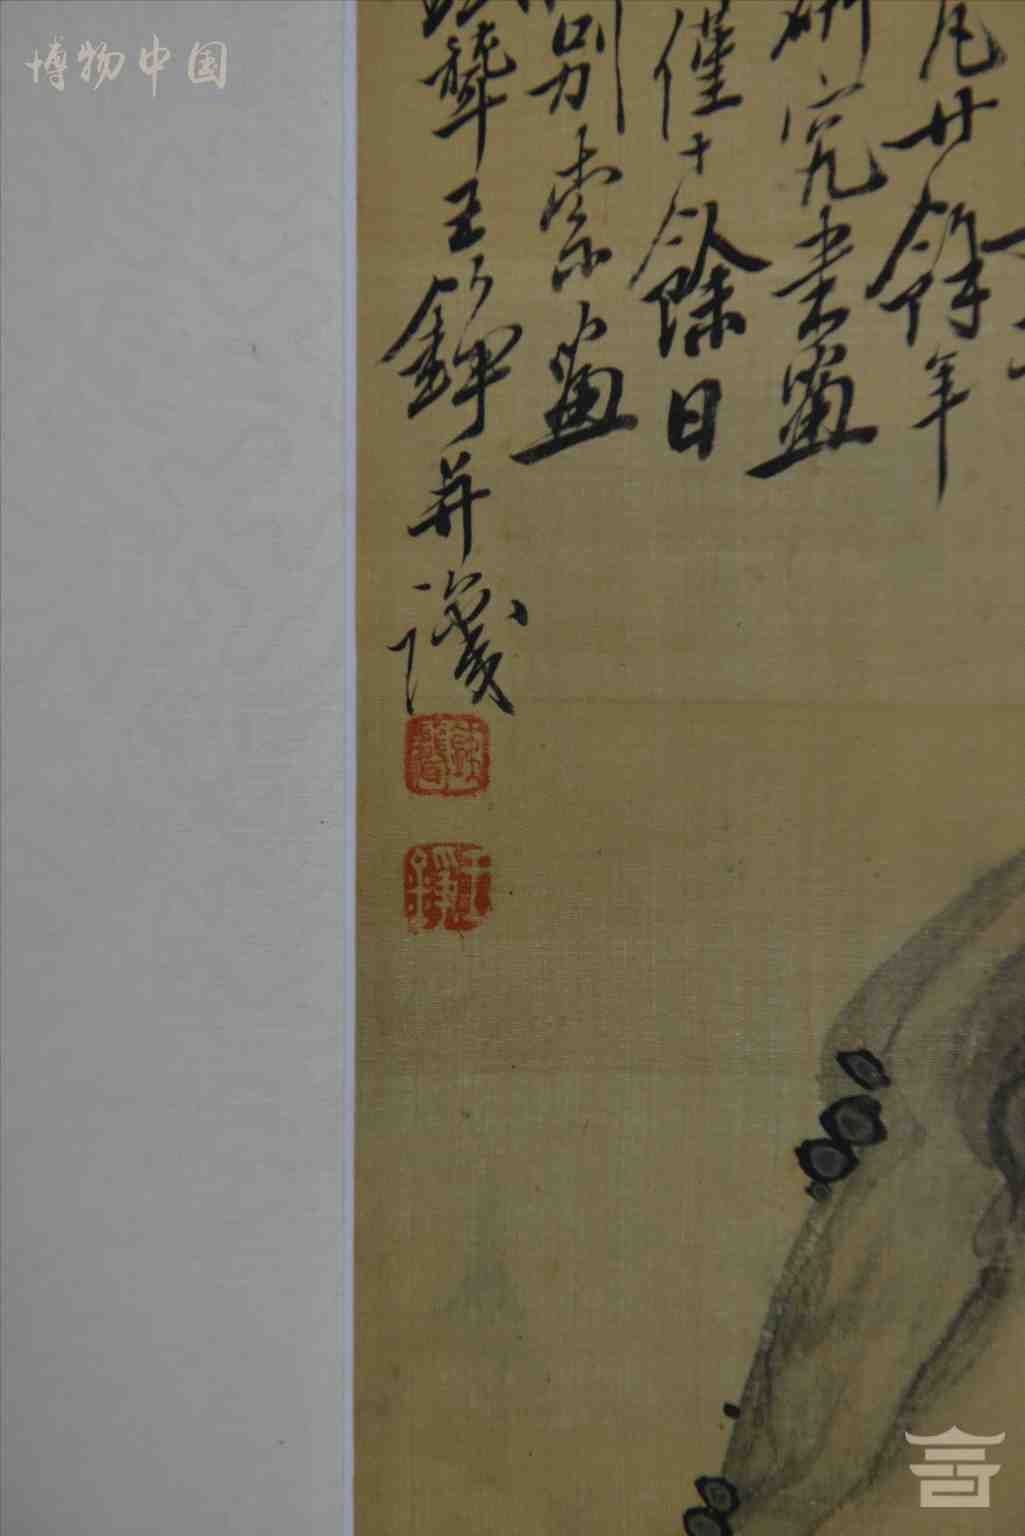 博物中国
凡廿餘年
研究書畫
僅十餘日
別索畫
聾王并識